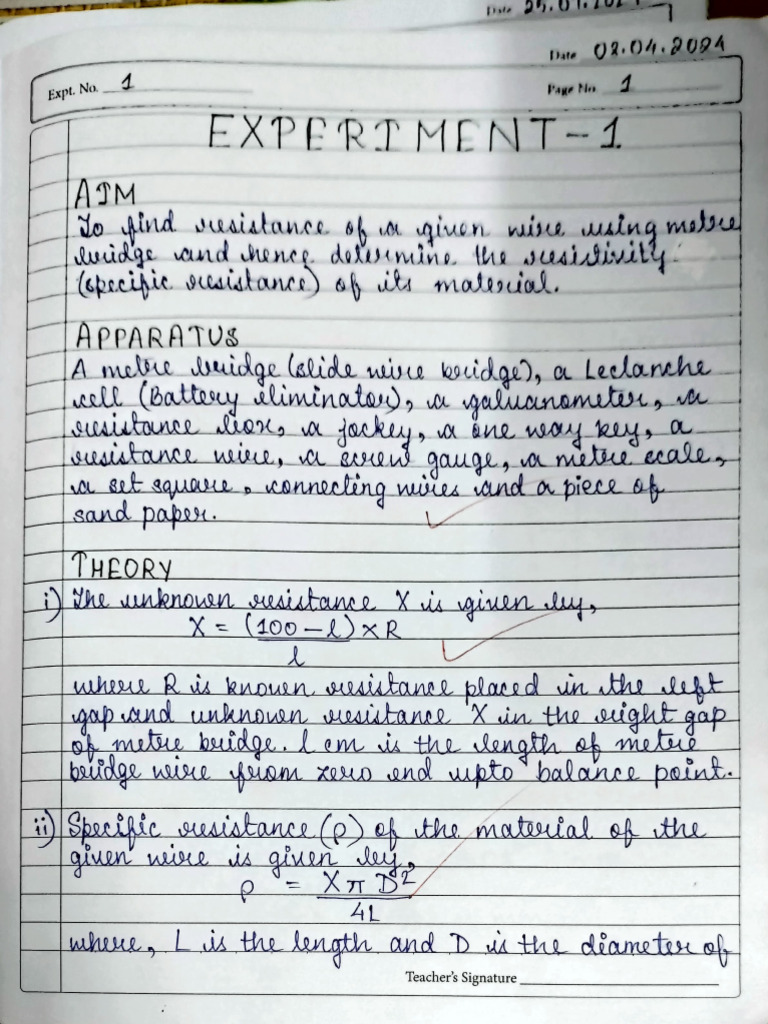 Date 25.01.202
Date 02.04.2024
Expt. No. 1
Page No. 1
EXPERIMENT-1
AIM
To find resistance of a given wire using metre
bridge and hence determine the resistivity
(specific resistance) of its material.
APPARATUS
A metre bridge (slide wire bridge), a Leclanche
cell (Battery eliminator), a galvanometer, a
resistance box, a jockey, a one way key, a
resistance wire, a screw gauge, a metre scale,
a set square, connecting wires and a piece of
sand paper.
THEORY
i) The unknown resistance X is given by,
X = (100 - l) × R
l
where R is known resistance placed in the left
gap and unknown resistance X in the right gap
of metre bridge. l cm is the length of metre
bridge wire from zero end upto balance point.
ii) Specific resistance (ρ) of the material of the
given wire is given by,
ρ = XπD²
4L
where, L is the length and D is the diameter of
Teacher's Signature